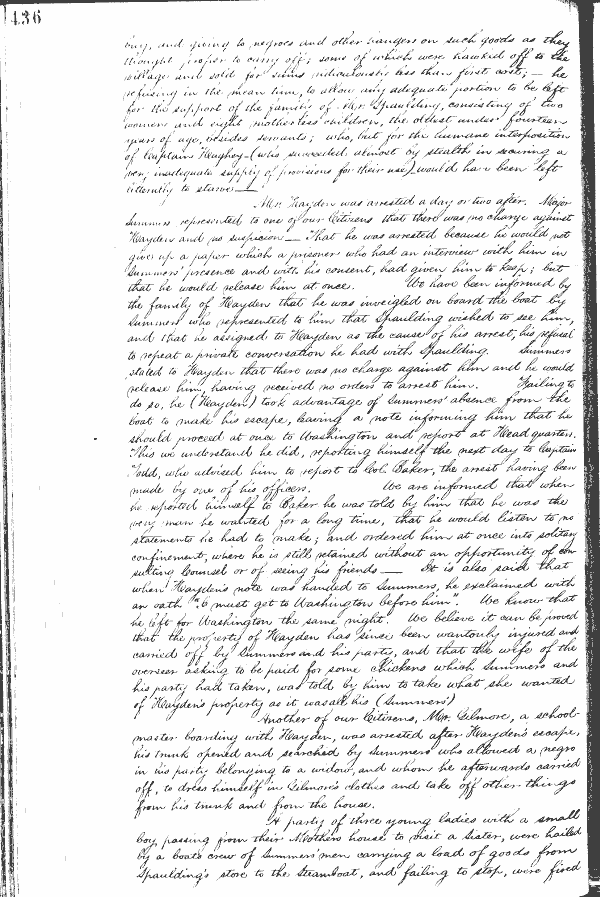 436
ing, and giving to negroes and other hangers on such goods as they
thought proper to carry off; some of which were hawked off to the
village and sold for sums ridiculously less than first cost; — he
refusing in the mean time, to allow any adequate portion to be left
for the support of the families of Mr. Spaulding, consisting of two
women and eight motherless children, the oldest under fourteen
years of age, besides servants; who, but for the humane interposition
of Captain Heaghey (who succeeded almost by stealth in securing a
very inadequate supply of provisions for their use) would have been left
literally to starve —
Mr. Hayden was arrested a day or two after. Major
Summers represented to one of our Citizens that there was no charge against
Hayden and no suspicion — That he was arrested because he would not
give up a paper which a prisoner who had an interview with him in
Summers' presence and with his consent, had given him to keep; but
that he would release him at once. We have been informed by
the family of Hayden that he was inveigled on board the boat by
Summers who represented to him that Spaulding wished to see him,
and that he assigned to Hayden as the cause of his arrest, his refusal
to repeat a private conversation he had with Spaulding. Summers
stated to Hayden that there was no charge against him and he would
release him, having received no orders to arrest him. Failing to
do so, he (Hayden) took advantage of Summers' absence from the
boat to make his escape, leaving a note informing him that he
should proceed at once to Washington and report at Head quarters.
This we understand he did, reporting himself the next day to Captain
Todd, who advised him to report to Col. Baker, the arrest having been
made by one of his officers. We are informed that when
he reported himself to Baker he was told by him that he was the
very man he wanted for a long time, that he would listen to no
statements he had to make; and ordered him at once into solitary
confinement, where he is still retained without an opportunity of con
sulting Counsel or of seeing his friends — It is also said that
when Hayden's note was handed to Summers, he exclaimed with
an oath "I must get to Washington before him". We know that
he left for Washington the same night. We believe it can be proved
that the property of Hayden has since been wantonly injured and
carried off by Summers and his party, and that the wife of the
overseer asking to be paid for some Chickens which Summers and
his party had taken, was told by him to take what she wanted
of Hayden's property as it was all his (Summers')
Another of our Citizens, Mr. Gilmore, a school-
master boarding with Hayden, was arrested after Hayden's escape,
his trunk opened and searched by Summers who allowed a negro
in his party belonging to a widow, and whom he afterwards carried
off, to dress himself in Gilmore's clothes and take off other things
from his trunk and from the house.
A party of three young ladies with a small
boy, passing from their Mothers house to visit a Sister, were hailed
by a boats crew of Summers' men carrying a load of goods from
Spaulding's store to the Steamboat, and failing to stop, were fired